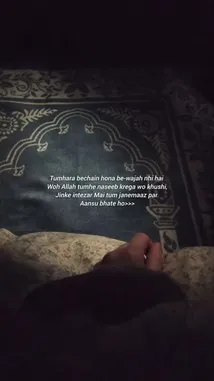 Tumhara bechain hona be-wajah nhi hai
Woh Allah tumhe naseeb krega wo khushi,
Jinke intezar Mai tum janemaaz pai
Aansu bhate ho>>>